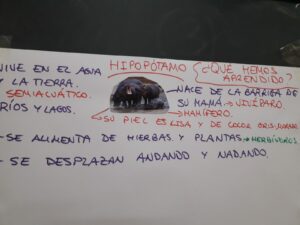 HIPOPÓTAMO
¿QUÉ HEMOS
APRENDIDO?
VIVE EN EL AGUA
Y LA TIERRA.
SEMIACUÁTICO.
RÍOS Y LAGOS.
NACE DE LA BARRIGA DE
SU MAMÁ. → VIVÍPARO.
→ MAMÍFERO.
SU PIEL ES LISA Y DE COLOR GRIS-
- SE ALIMENTA DE HIERBAS Y PLANTAS → HERBÍVOROS.
- SE DESPLAZAN ANDANDO Y NADANDO.